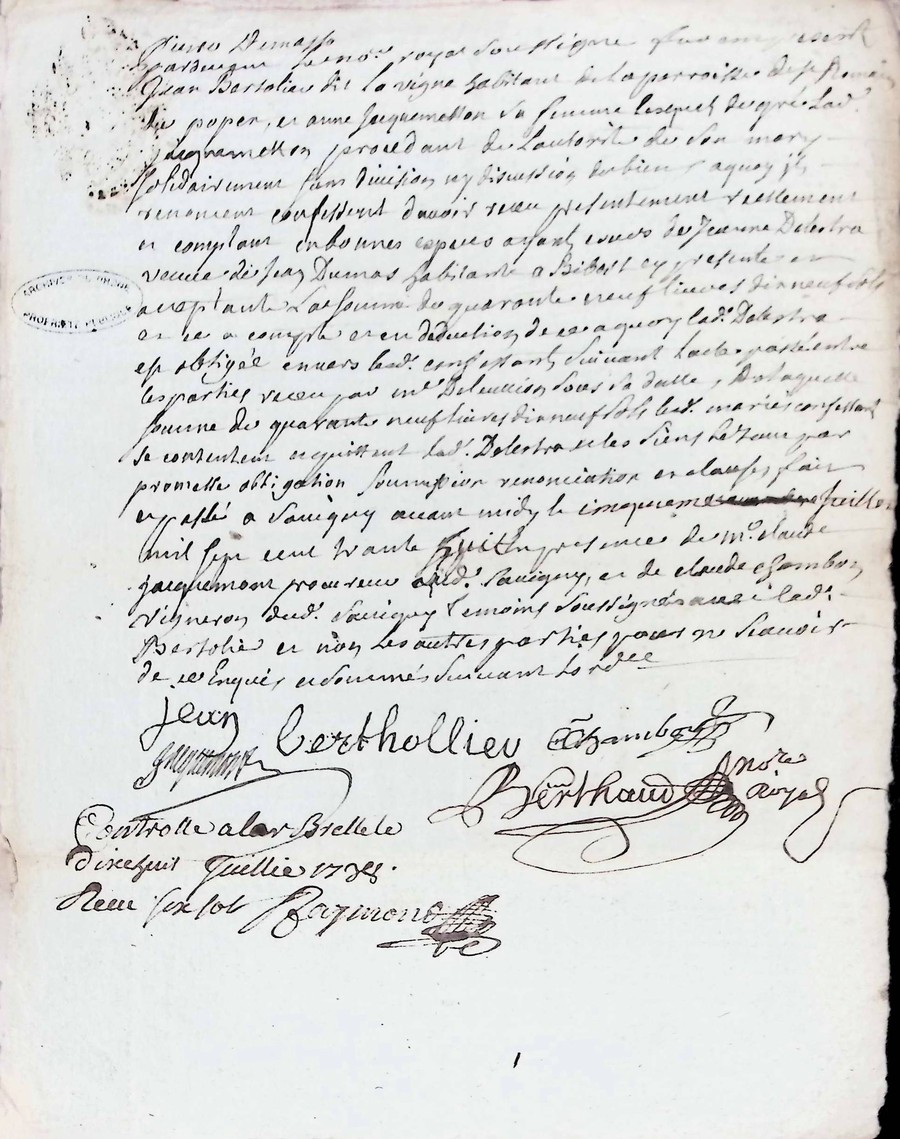 Pierre Dumas
pardevant le no.re royal soussigné fut en present
Jean Bertolié dit la vigne habitant de la parroisse de st Romain
de popey, et anne Jacquemetton sa femme lesquels de gré lad.
Jacquemetton procedant de l'autorité de son mary
solidairement sans division ny discussion de biens a quoy ils
renoncent confessent d'avoir receu presentement reellement
et comptant en bonnes especes ayant cours de Jeanne Delestra
veuve de Jean Dumas habitante a Bibost cy presente et
acceptante La somme de quarante neuf livres dix neuf sols
et ce a compte et en deduction de ce a quoy lad. Delestra
est obligée envers lesd. confessants suivant l'acte passé entre
les parties receu par me sous sa datte, De laquelle
somme de quarante neuf livres dix neuf sols lesd. mariés confessants
se contentent et quittent lad. Delestra et les siens par
promesse obligation soumission renonciation et clauses, fait
et passé a Savigny avant midy le cinquieme Juillet
mil sept cent trante huit en presence de m.e claude
Jacquemont procureur aud. Savigny, et de claude chambon
vigneron dud. Savigny temoins soussignés avec led.
Bertolié et non les autres parties pour ne sçavoir
de ce Enquis et sommés suivant l'ord.ce
Jean berthollieu
Jacquemont
Chambon
Berthaud no.re Royal
ARCHIVES DU RHONE
PROPRIÉTÉ PUBLIQUE
Controllé a lar Brelle le
dixehuit Juillie 1738.
Receu six sols Raymond